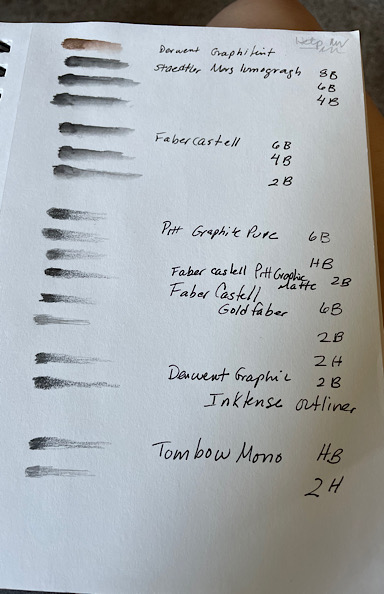 Derwent Graphitint
Staedtler Mars lumograph 8B
6B
4B
Faber Castell 6B
4B
2B
Pitt Graphite Pure 6B
HB
Faber castell Pitt Graphic Matte 2B
Faber Castell
Goldfaber 6B
2B
2H
Derwent Graphic 2B
Inktense outliner
Tombow Mono HB
2H